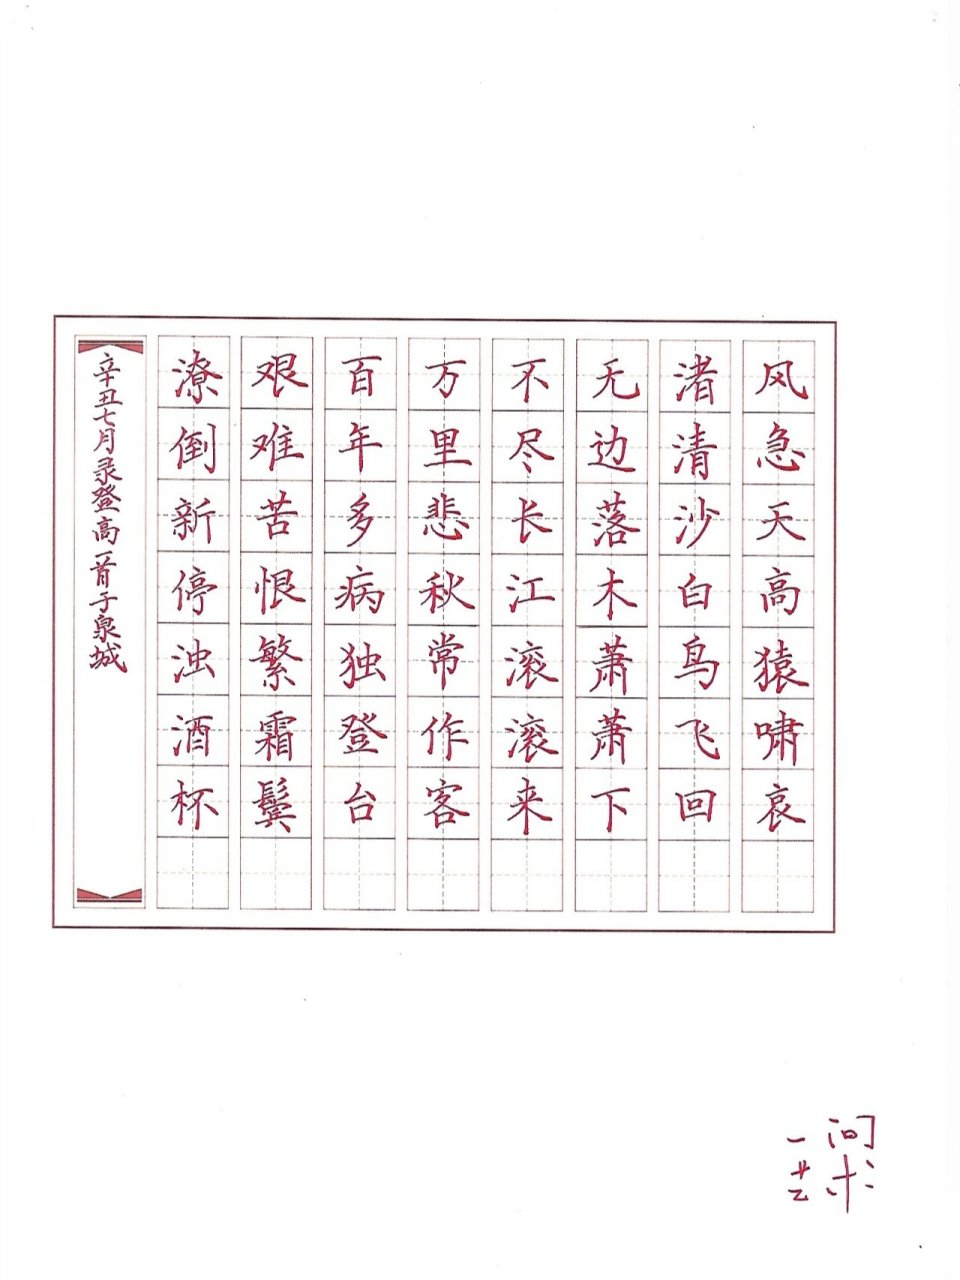 风急天高猿啸哀
渚清沙白鸟飞回
无边落木萧萧下
不尽长江滚滚来
万里悲秋常作客
百年多病独登台
艰难苦恨繁霜鬓
潦倒新停浊酒杯
辛丑七月录登高一首子泉城
问求
一艺